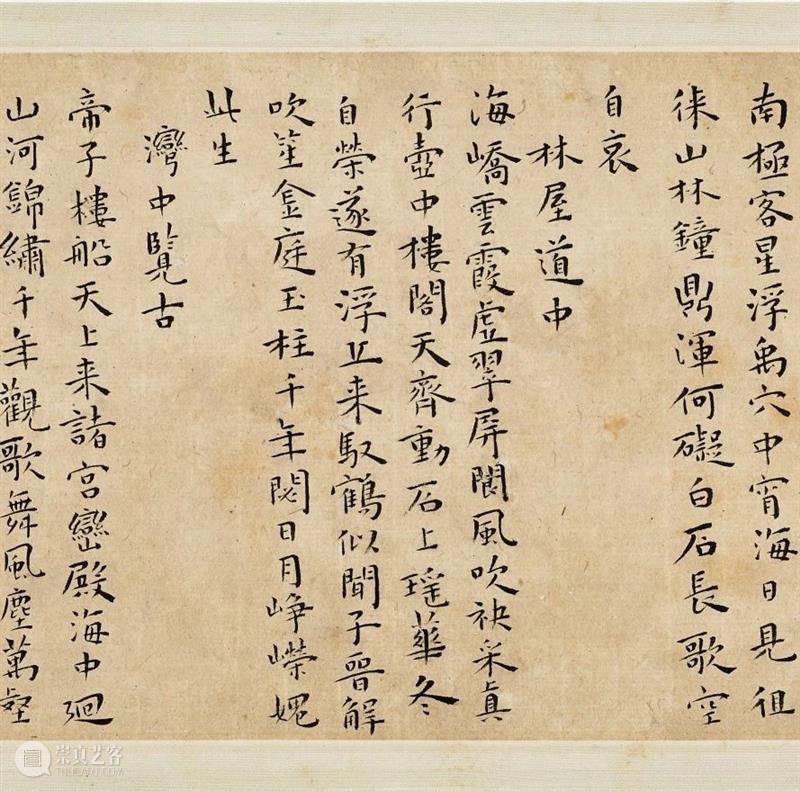 南極客星浮禹穴中宵海日見徂
徠山林鐘鼎渾何礙白石長歌空
自哀
林屋道中
海嶠雲霞虛翠屏閬風吹袂采真
行壺中樓閣天齊動石上瑤華冬
自榮遂有浮丘来馭鶴似聞子晉解
吹笙金庭玉柱千年閟日月崢嶸媿
此生
灣中覽古
帝子樓船天上来諸宮巒殿海中廻
山河錦繡千年觀歌舞風塵萬壑
崇真艺客
TRUEART.COM